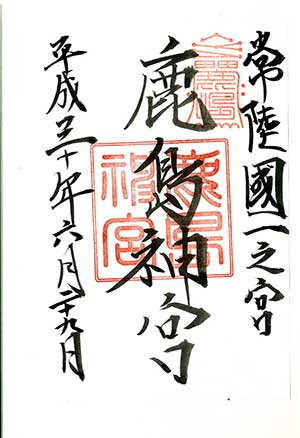 常陸國一之宮
鹿島神宮
鹿島
神宮
平成三十年六月二十九月